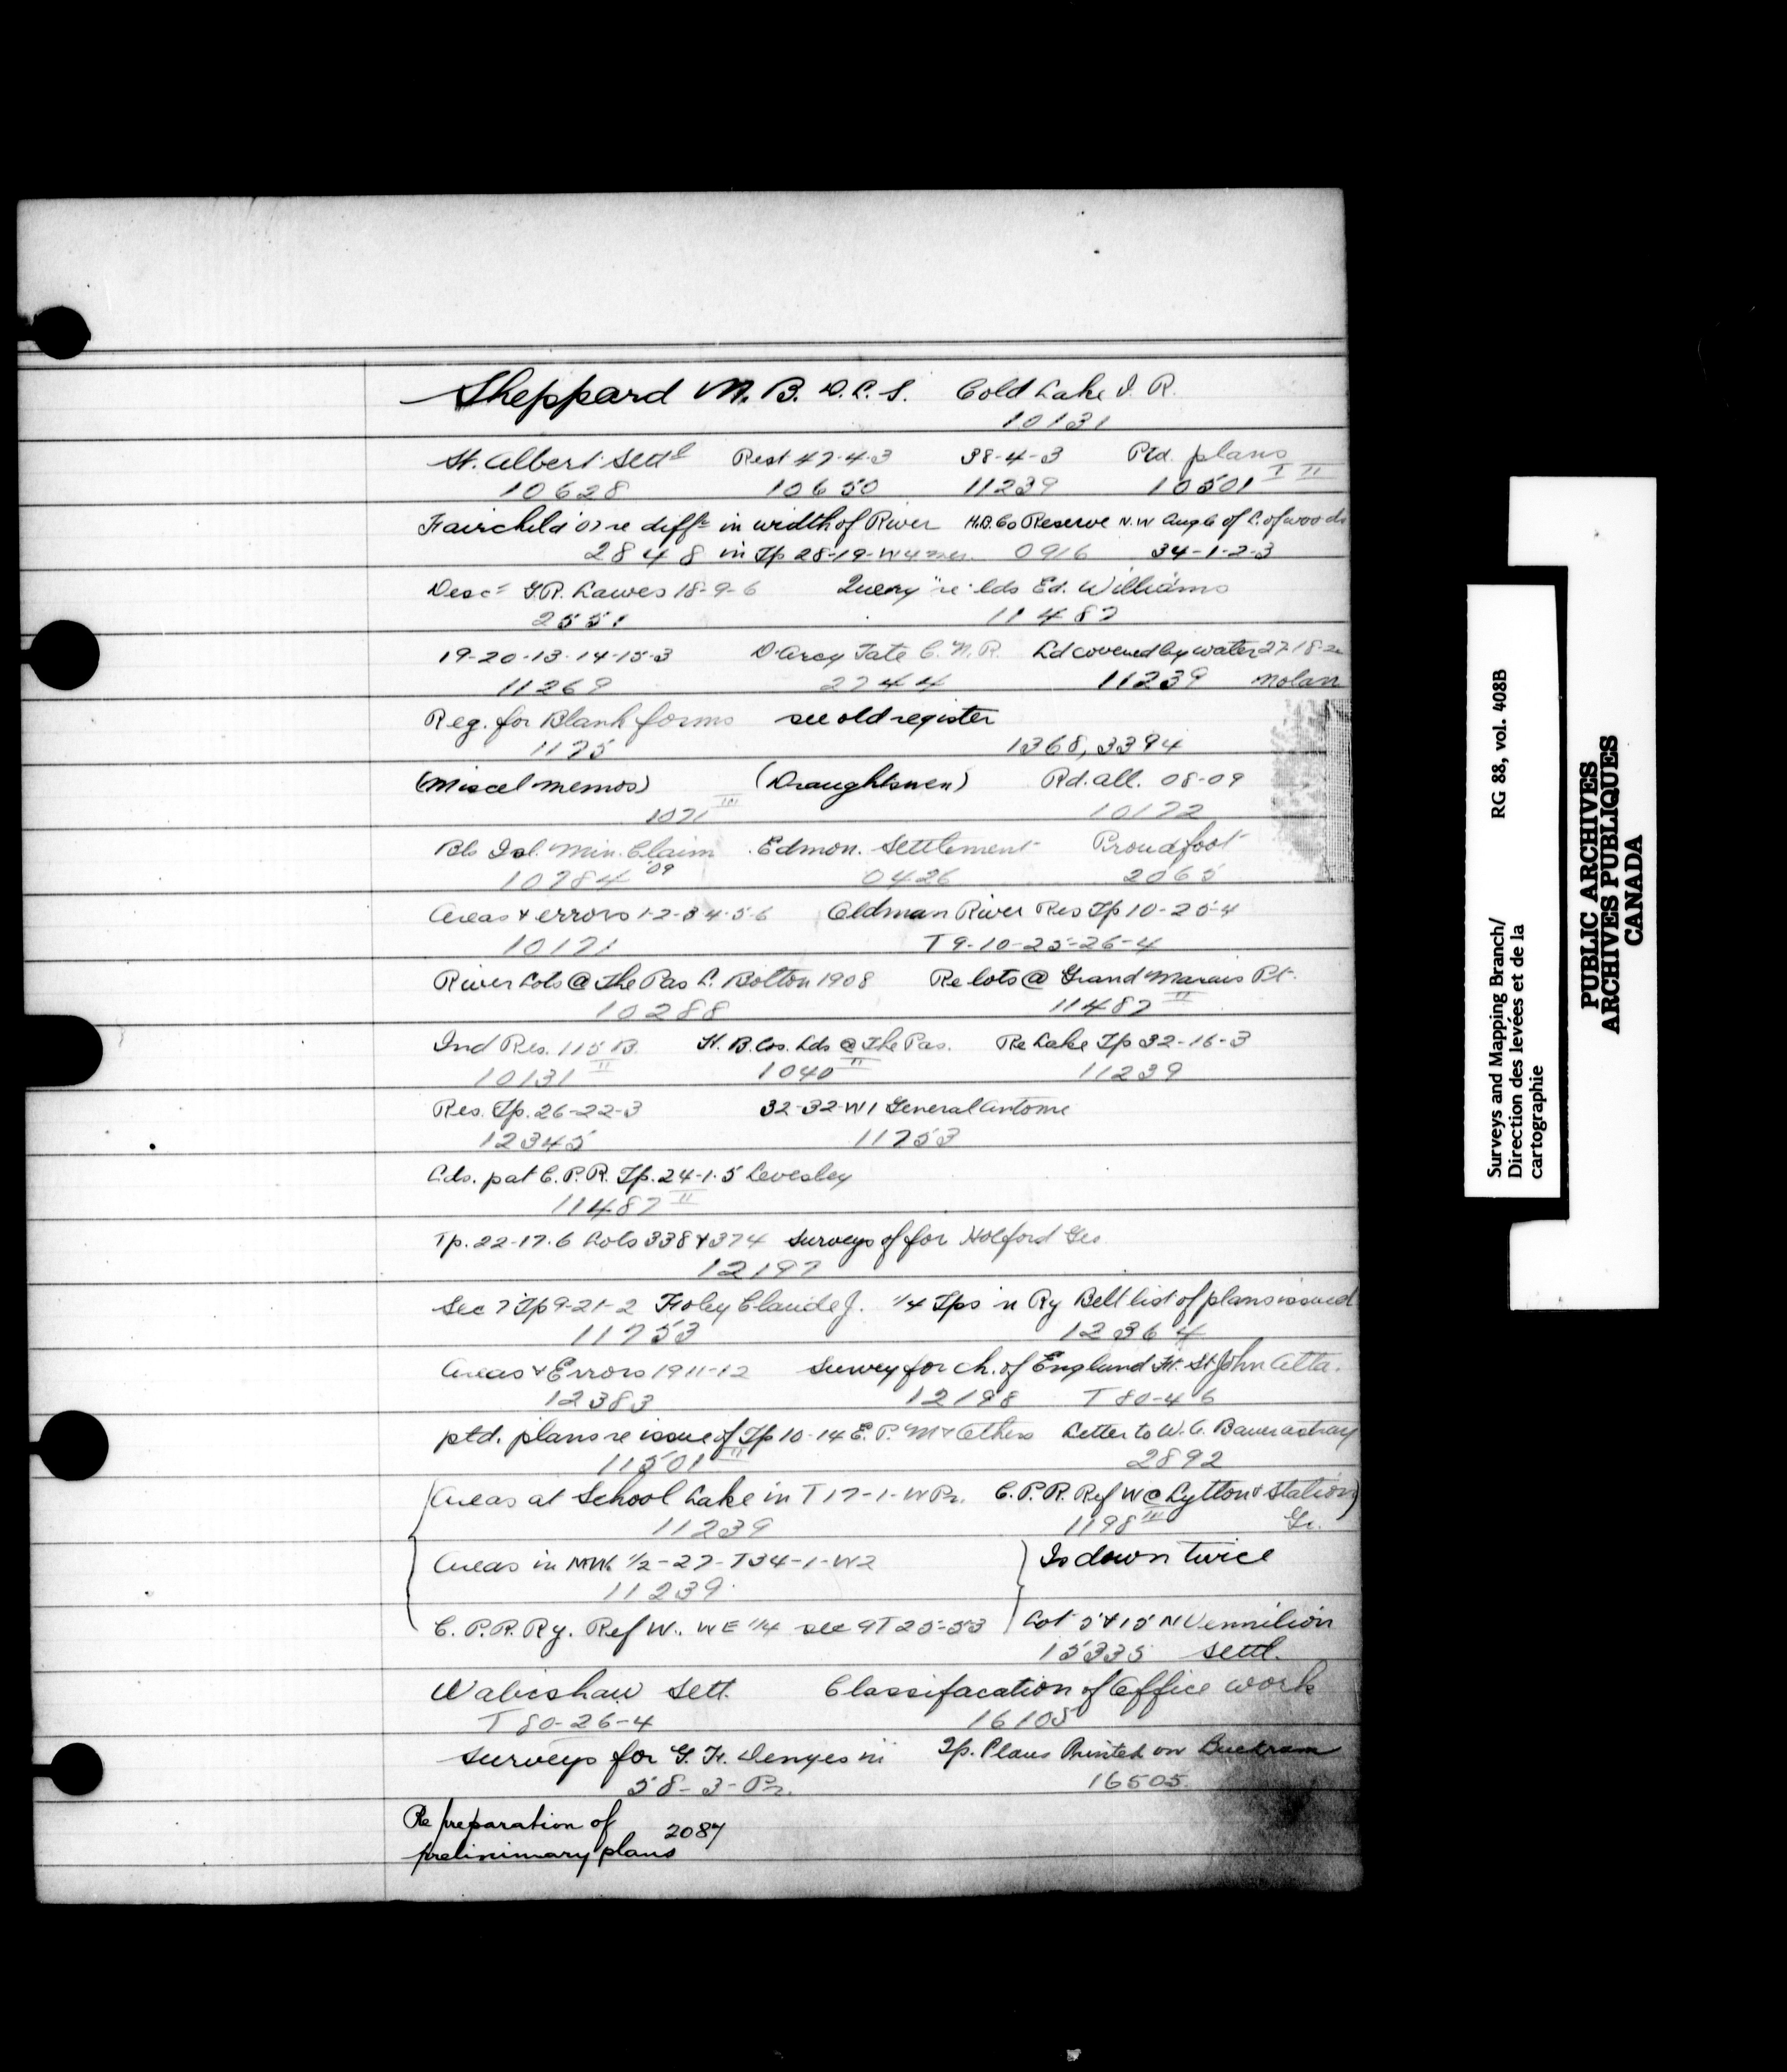 Sheppard M. B. D. L. S. Cold Lake I. R.
10131
St. Albert Settl Rest 47-4-3 38-4-3 Ptd. plans
10628 10650 11239 10501 I II
Fairchild '07 re diffce in width of River H.B.Co Reserve N.W Angle of L. of woods
2848 in Tp 28-19-W4 mer. 0916 34-1-2-3
Desc= G.R. Lawes 18-9-6 Query re lds Ed. Williams
2551 11487
19-20-13-14-15-3 D'Arcy Tate C.N.R. Ld covered by water 27-18-2
11269 2744 11239 Molan
Reg. for Blank forms see old register
1175 1368, 3394
(Miscel memos) (Draughtsmen) Rd. all. 08-09
1071 III 10172
Bb Isl. Min. Claim Edmon. Settlement Proudfoot
10784 '09 0426 2065
Areas & errors 1-2-3-4-5-6 Oldman River Res Tp 10-25-4
10171 T 9-10-25-26-4
River Lots @ The Pas L. Bolton 1908 Re lots @ Grand Marais Pt.
10288 11487 II
Ind Res. 115 B. H. B. Cos. Lds @ The Pas. Re Lake Tp 32-16-3
10131 II 1040 II 11239
Res. Tp. 26-22-3 32-32-W1 General Antome
12345 11753
Lds. pat C. P. R. Tp. 24-1-5 Levesley
11487 II
Tp. 22-17-6 Lots 338 & 374 surveys of for Holford Geo.
12197
Sec 7 Tp 9-21-2 Foley Claude J. 1/4 Tps in Ry Belt list of plans issued
11753 12364
Areas & Errors 1911-12 Survey for Ch. of England Ft. St John Alta.
12383 12198 T 80-4-6
ptd. plans re issue of Tp 10-14 E. P. M & Others Letter to W. C.
11501 II 2892
Areas at School Lake in T 17-1-W Pr. C. P. R. Ref W @ Lytton & Station
11239 1198 III Gr.
Areas in NW 1/2-27-T34-1-W2 Is down twice
11239
C. P. R. Ry. Ref W. NE 1/4 sec 9 T 25-5-3 Lot 5 & 15 N Vermilion
15335 Settl.
Wabishaw Sett. Classifacation of Office work
T 80-26-4 16105
Surveys for G. H. Denyes in Tp. Plans Printed on Buckram
58-3-Pr. 16505
Re preparation of
preliminary plans 2087
Surveys and Mapping Branch/ RG 88, vol. 408B
Direction des levées et de la
cartographie
PUBLIC ARCHIVES
ARCHIVES PUBLIQUES
CANADA